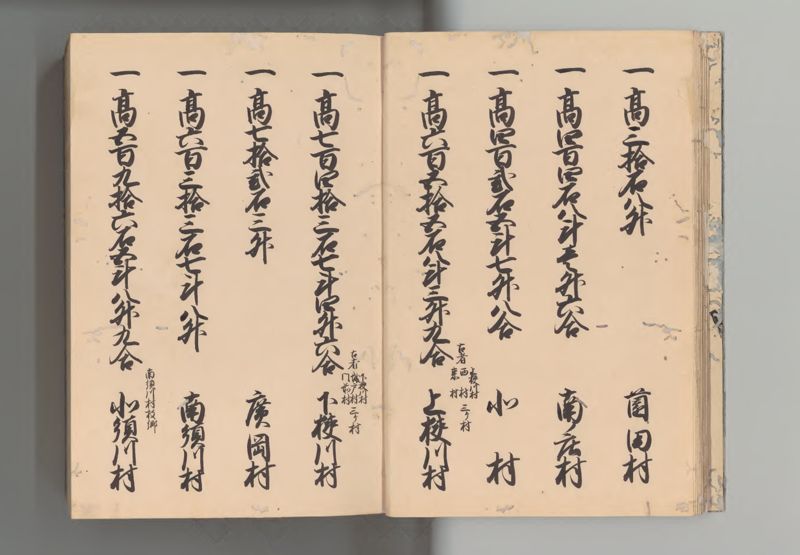 一 高三拾石八升 菌田村
一 高四百四石八斗壱升六合 南庄村
一 高四百弐石五斗七升八合 小村
一 高六百五拾五石八斗三升九合 上梚川村
古者 西村 東村 三ヶ村
一 高七百四拾三石七斗四升六合 下梚川村
古者 下梚川村 門前村 三ヶ村
一 高七拾弐石三升 廣岡村
一 高六百三拾三石七斗八升 南須川村
一 高五百九拾六石五斗八升九合 小須川村
南須川村枝郷